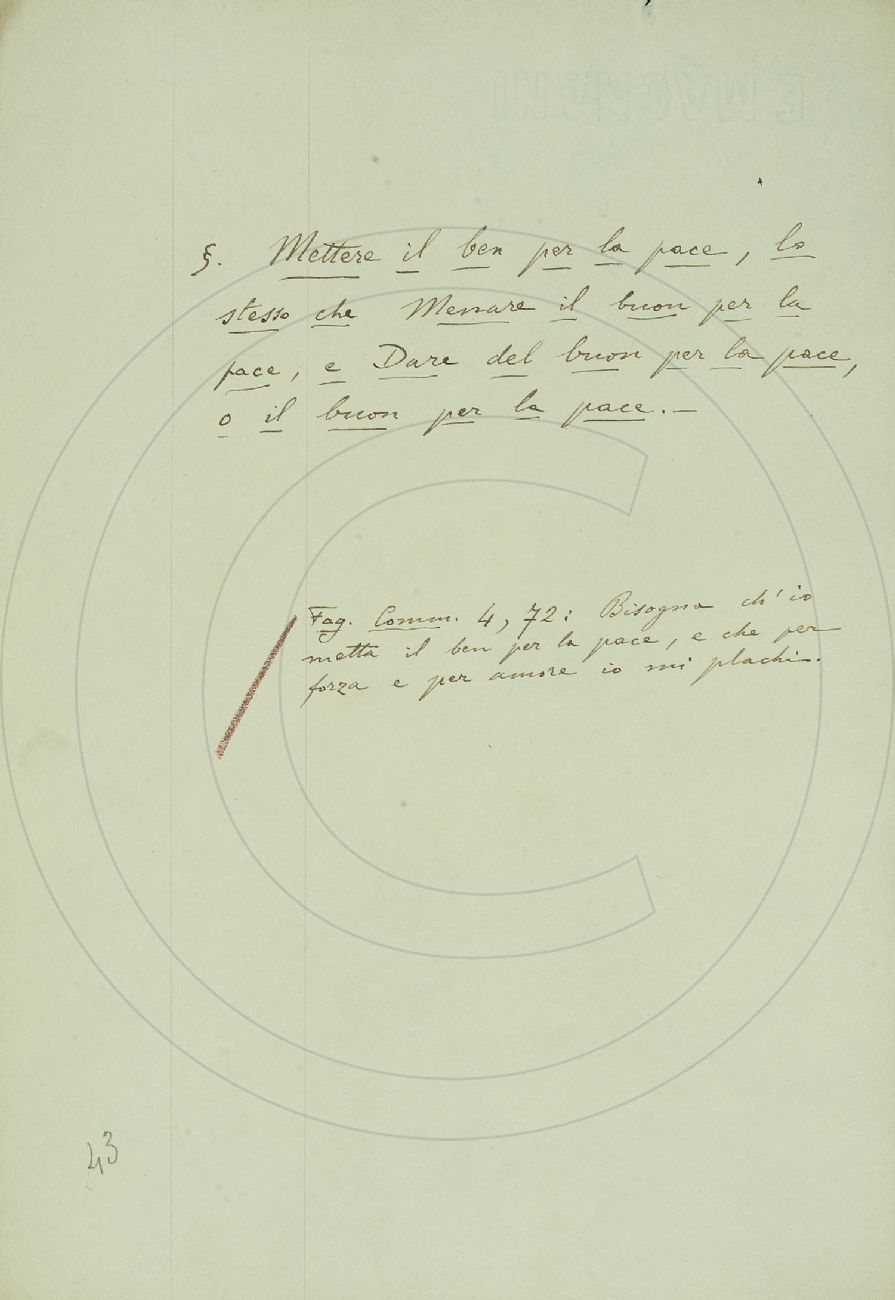 §. Mettere il ben per la pace, lo
stesso che Menare il buon per la
pace, e Dare del buon per la pace,
o il buon per la pace. —
Fag. Comm. 4, 72: Bisogna ch' io
metta il ben per la pace, e che per
forza e per amore io mi plachi.
43